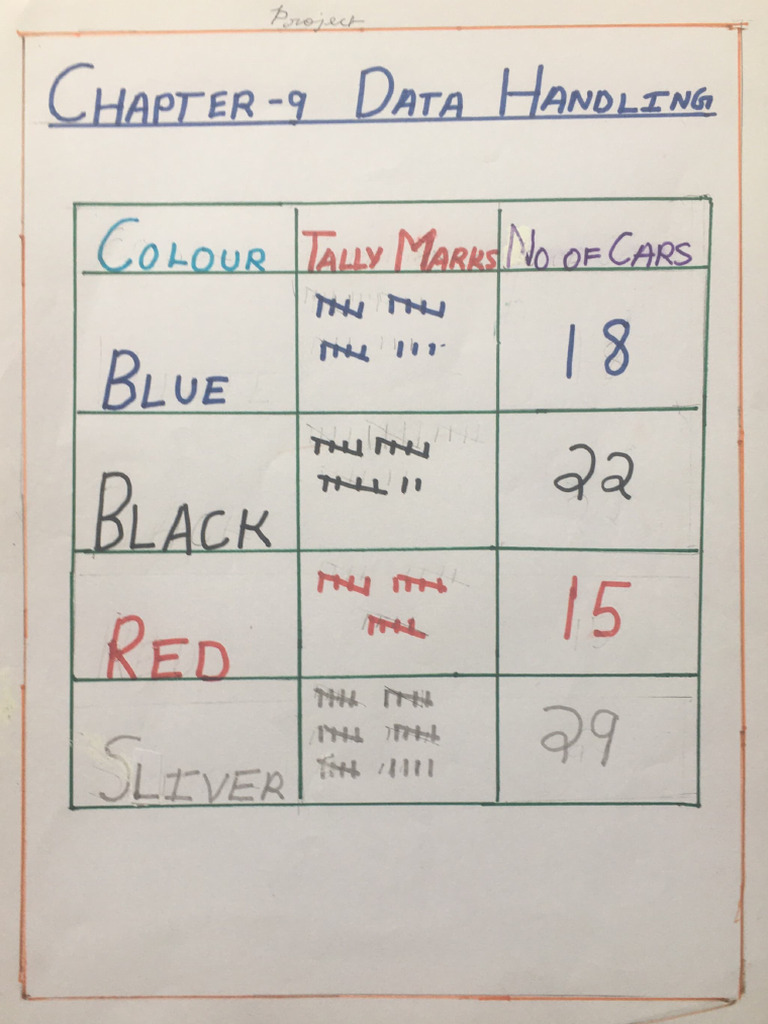 Project
CHAPTER-9 DATA HANDLING
COLOUR TALLY MARKS NO OF CARS
BLUE 18
BLACK 22
RED 15
SLIVER 29